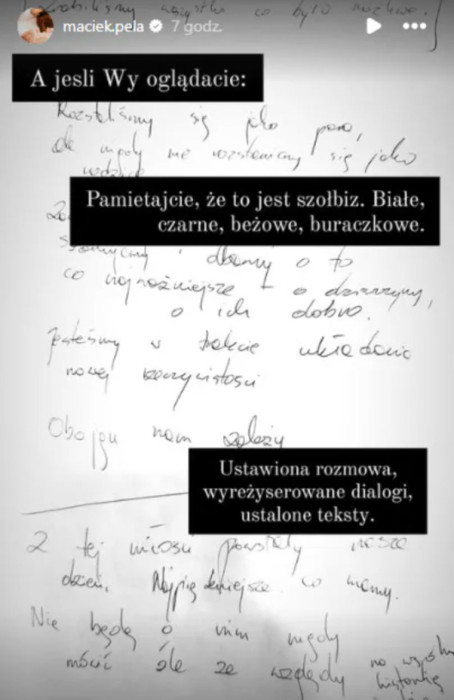 maciek.pela 7 godz.
A jesli Wy oglądacie:
Rozstaliśmy się jako para,
ale nigdy nie rozstaniemy się jako
Pamietajcie, że to jest szołbiz. Białe,
czarne, beżowe, buraczkowe.
dbamy o to
co najważniejsze - o dziewczyny,
o ich dobro.
Jesteśmy w trakcie układania
nowej rzeczywistości
Obojgu nam zależy
Ustawiona rozmowa,
wyreżyserowane dialogi,
ustalone teksty.
Z tej miłości powstały nasze
dzieci. Najpiękniejsze co mamy.
Nie będę o nim nigdy
mówić źle ze względu na wspólną
historię